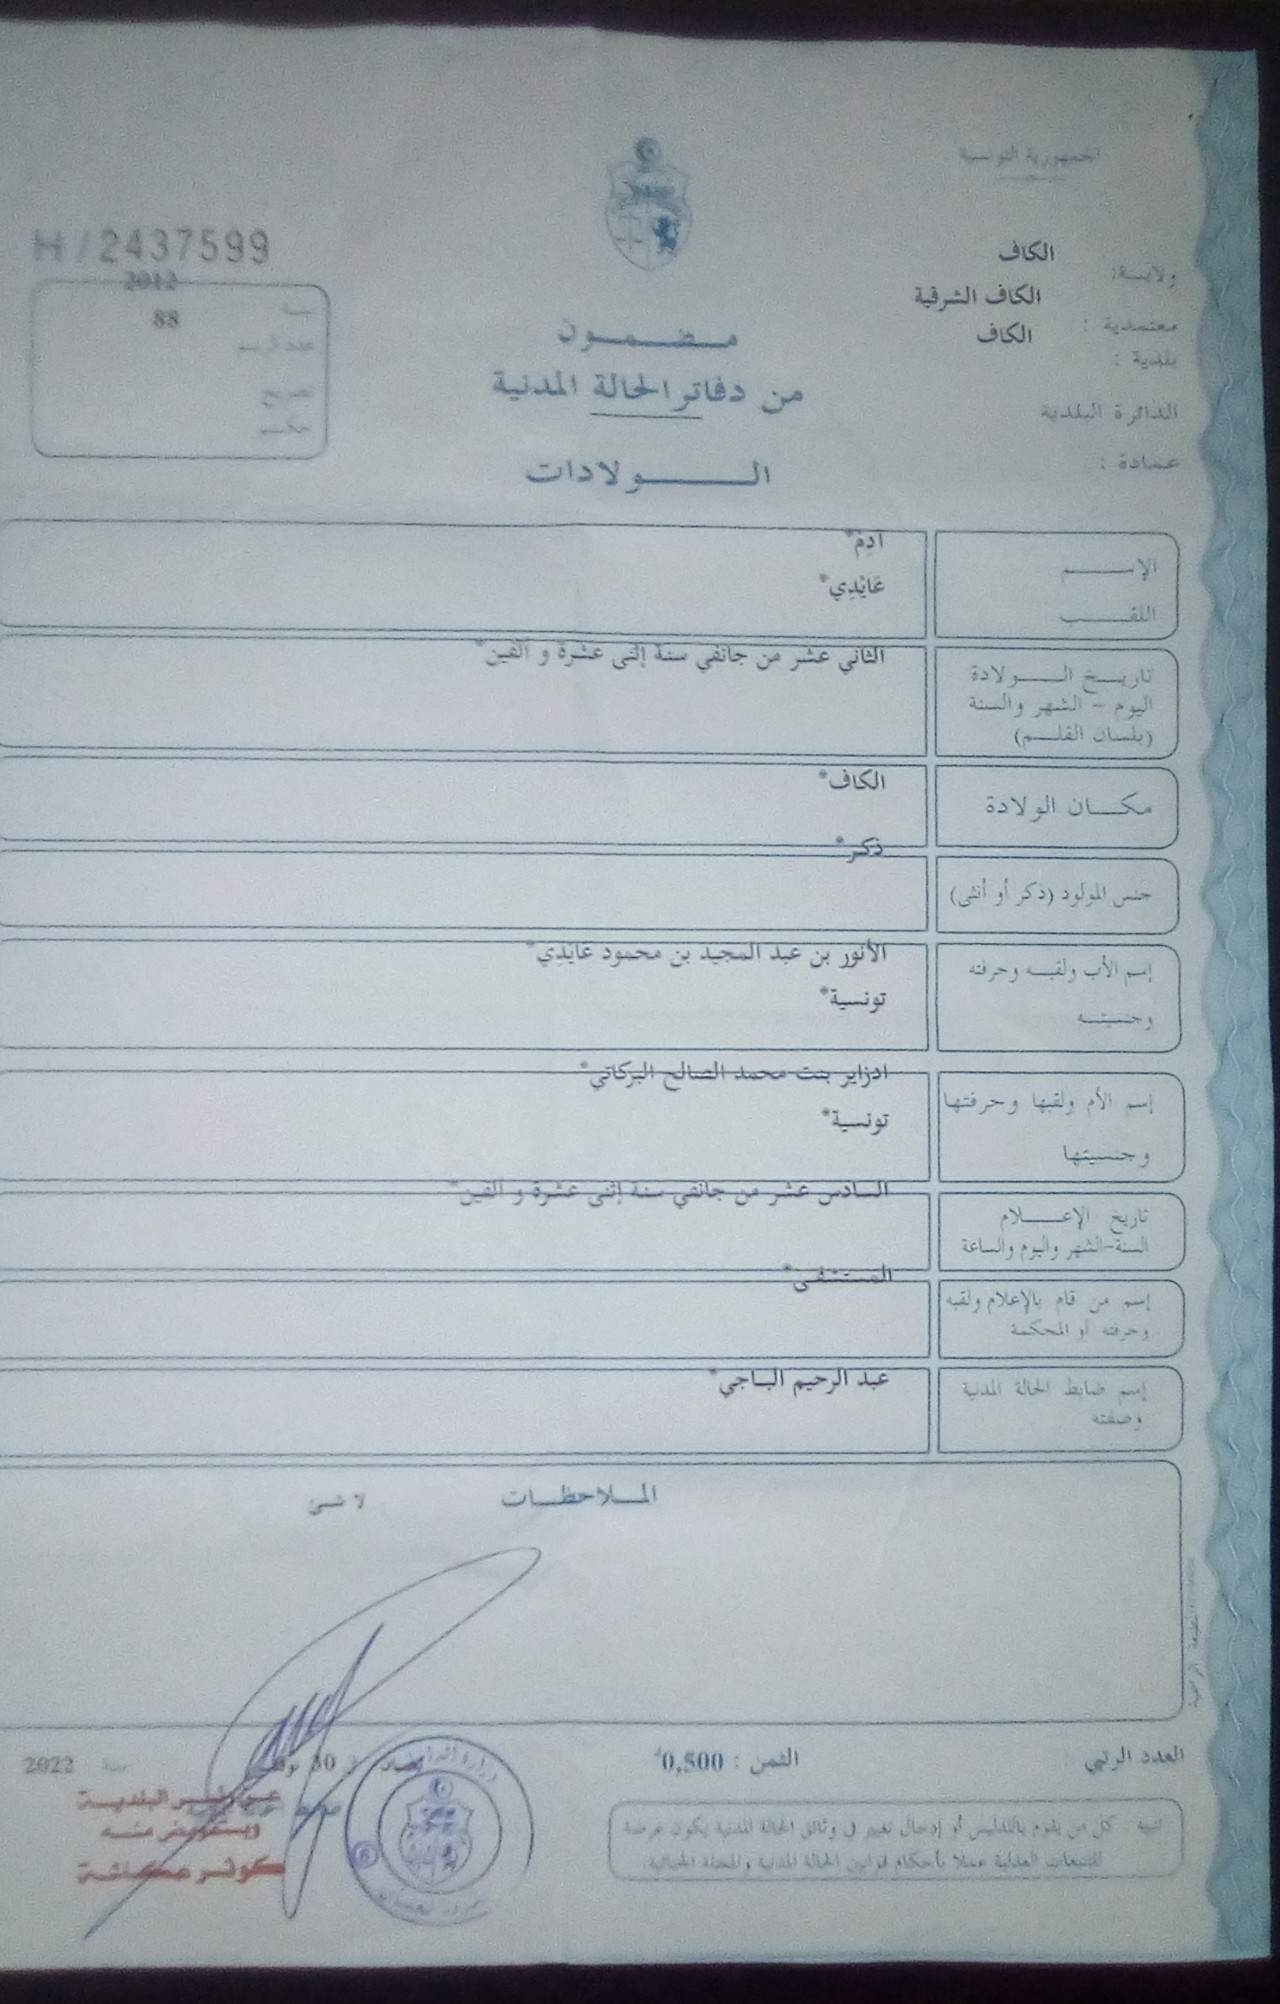 الجمهورية التونسية
ولايـــة: الكاف
معتمدية : الكاف الشرقية
بلدية : الكاف
الدائرة البلدية
عمادة :
H / 2437599
سنة 2012
عدد الرسم 88
تصريح
حكم
مـضـمـون
من دفاتر الحالة المدنية
الـولادات
الإســـم آدم*
اللقـــب عَايْدِي*
تاريـخ الـولادة
اليوم - الشهر والسنة
(بلسان القلـم)
الثاني عشر من جانفي سنة إثنى عشرة و ألفين*
مكـان الولادة الكاف*
جنس المولود (ذكر أو أنثى) ذكر*
إسم الأب ولقبـه وحرفته
وجنسيتـه
الأنور بن عبد المجيد بن محمود عايدي*
تونسية*
إسم الأم ولقبها وحرفتها
وجنسيتها
ادزاير بنت محمد الصالح البركاتي*
تونسية*
تاريخ الإعـــلام
السنة-الشهر واليوم والساعة
السادس عشر من جانفي سنة إثنى عشرة و ألفين*
إسم من قام بالإعلام ولقبه
وحرفته أو المحكمة
المستشفى*
إسم ضابط الحالة المدنية
وصفته
عبد الرحيم الباجي*
المـلاحظـات لا شئ
العدد الرتبي :
الثمن : 0,500د
30 سنة 2022
عن البلدية
وبتفويض منه
كوثر
تنبيه : كل من يقوم بالتدليس أو إدخال تغيير في وثائق الحالة المدنية يكون عرضة
للتتبعات العدلية عملا بأحكام قوانين الحالة المدنية والمجلة الجنائية.